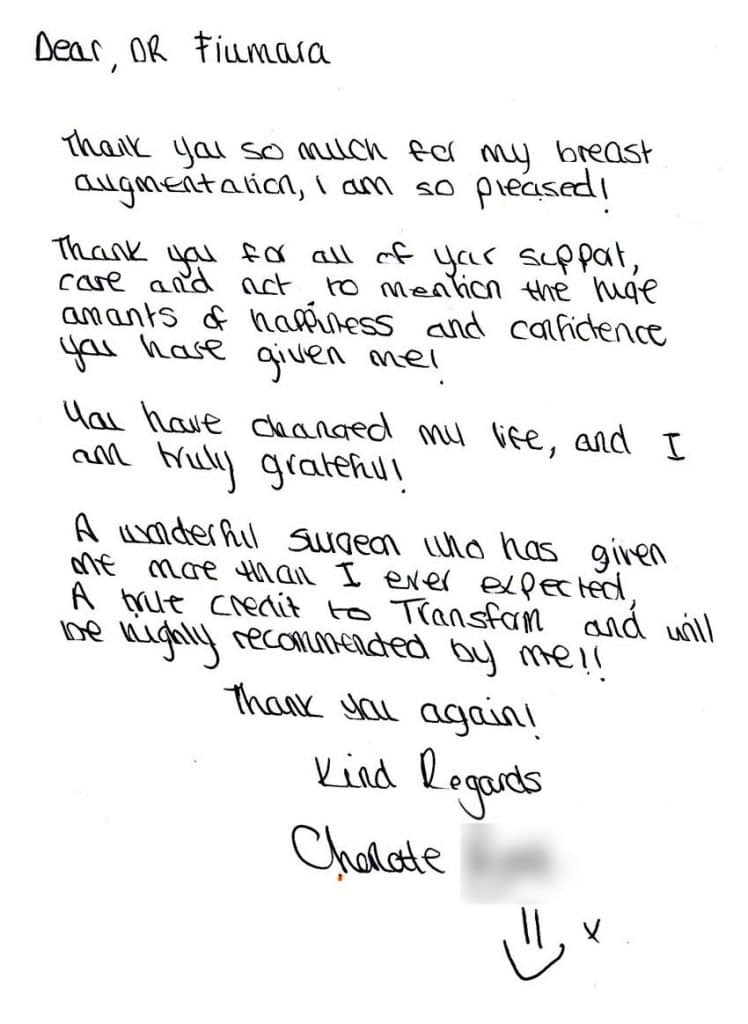 Dear, DR Fiumara
Thank you so much for my breast
augmentation, I am so pleased!
Thank you for all of your support,
care and not to mention the huge
amounts of happiness and confidence
you have given me!
You have changed my life, and I
am truly grateful!
A wonderful surgeon who has given
me more than I ever expected,
A true credit to Transform and will
be highly recommended by me!!
Thank you again!
Kind Regards
Charlotte
x